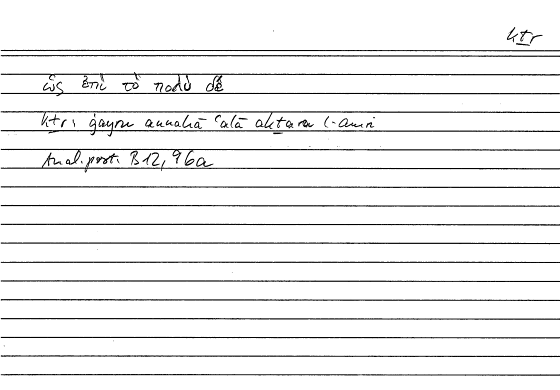 kṯr
ὡς ἐπὶ τὸ πολὺ δέ
kṯr: ġayru annahā ʿalā akṯara l-amri
Anal. prot. B12, 96a